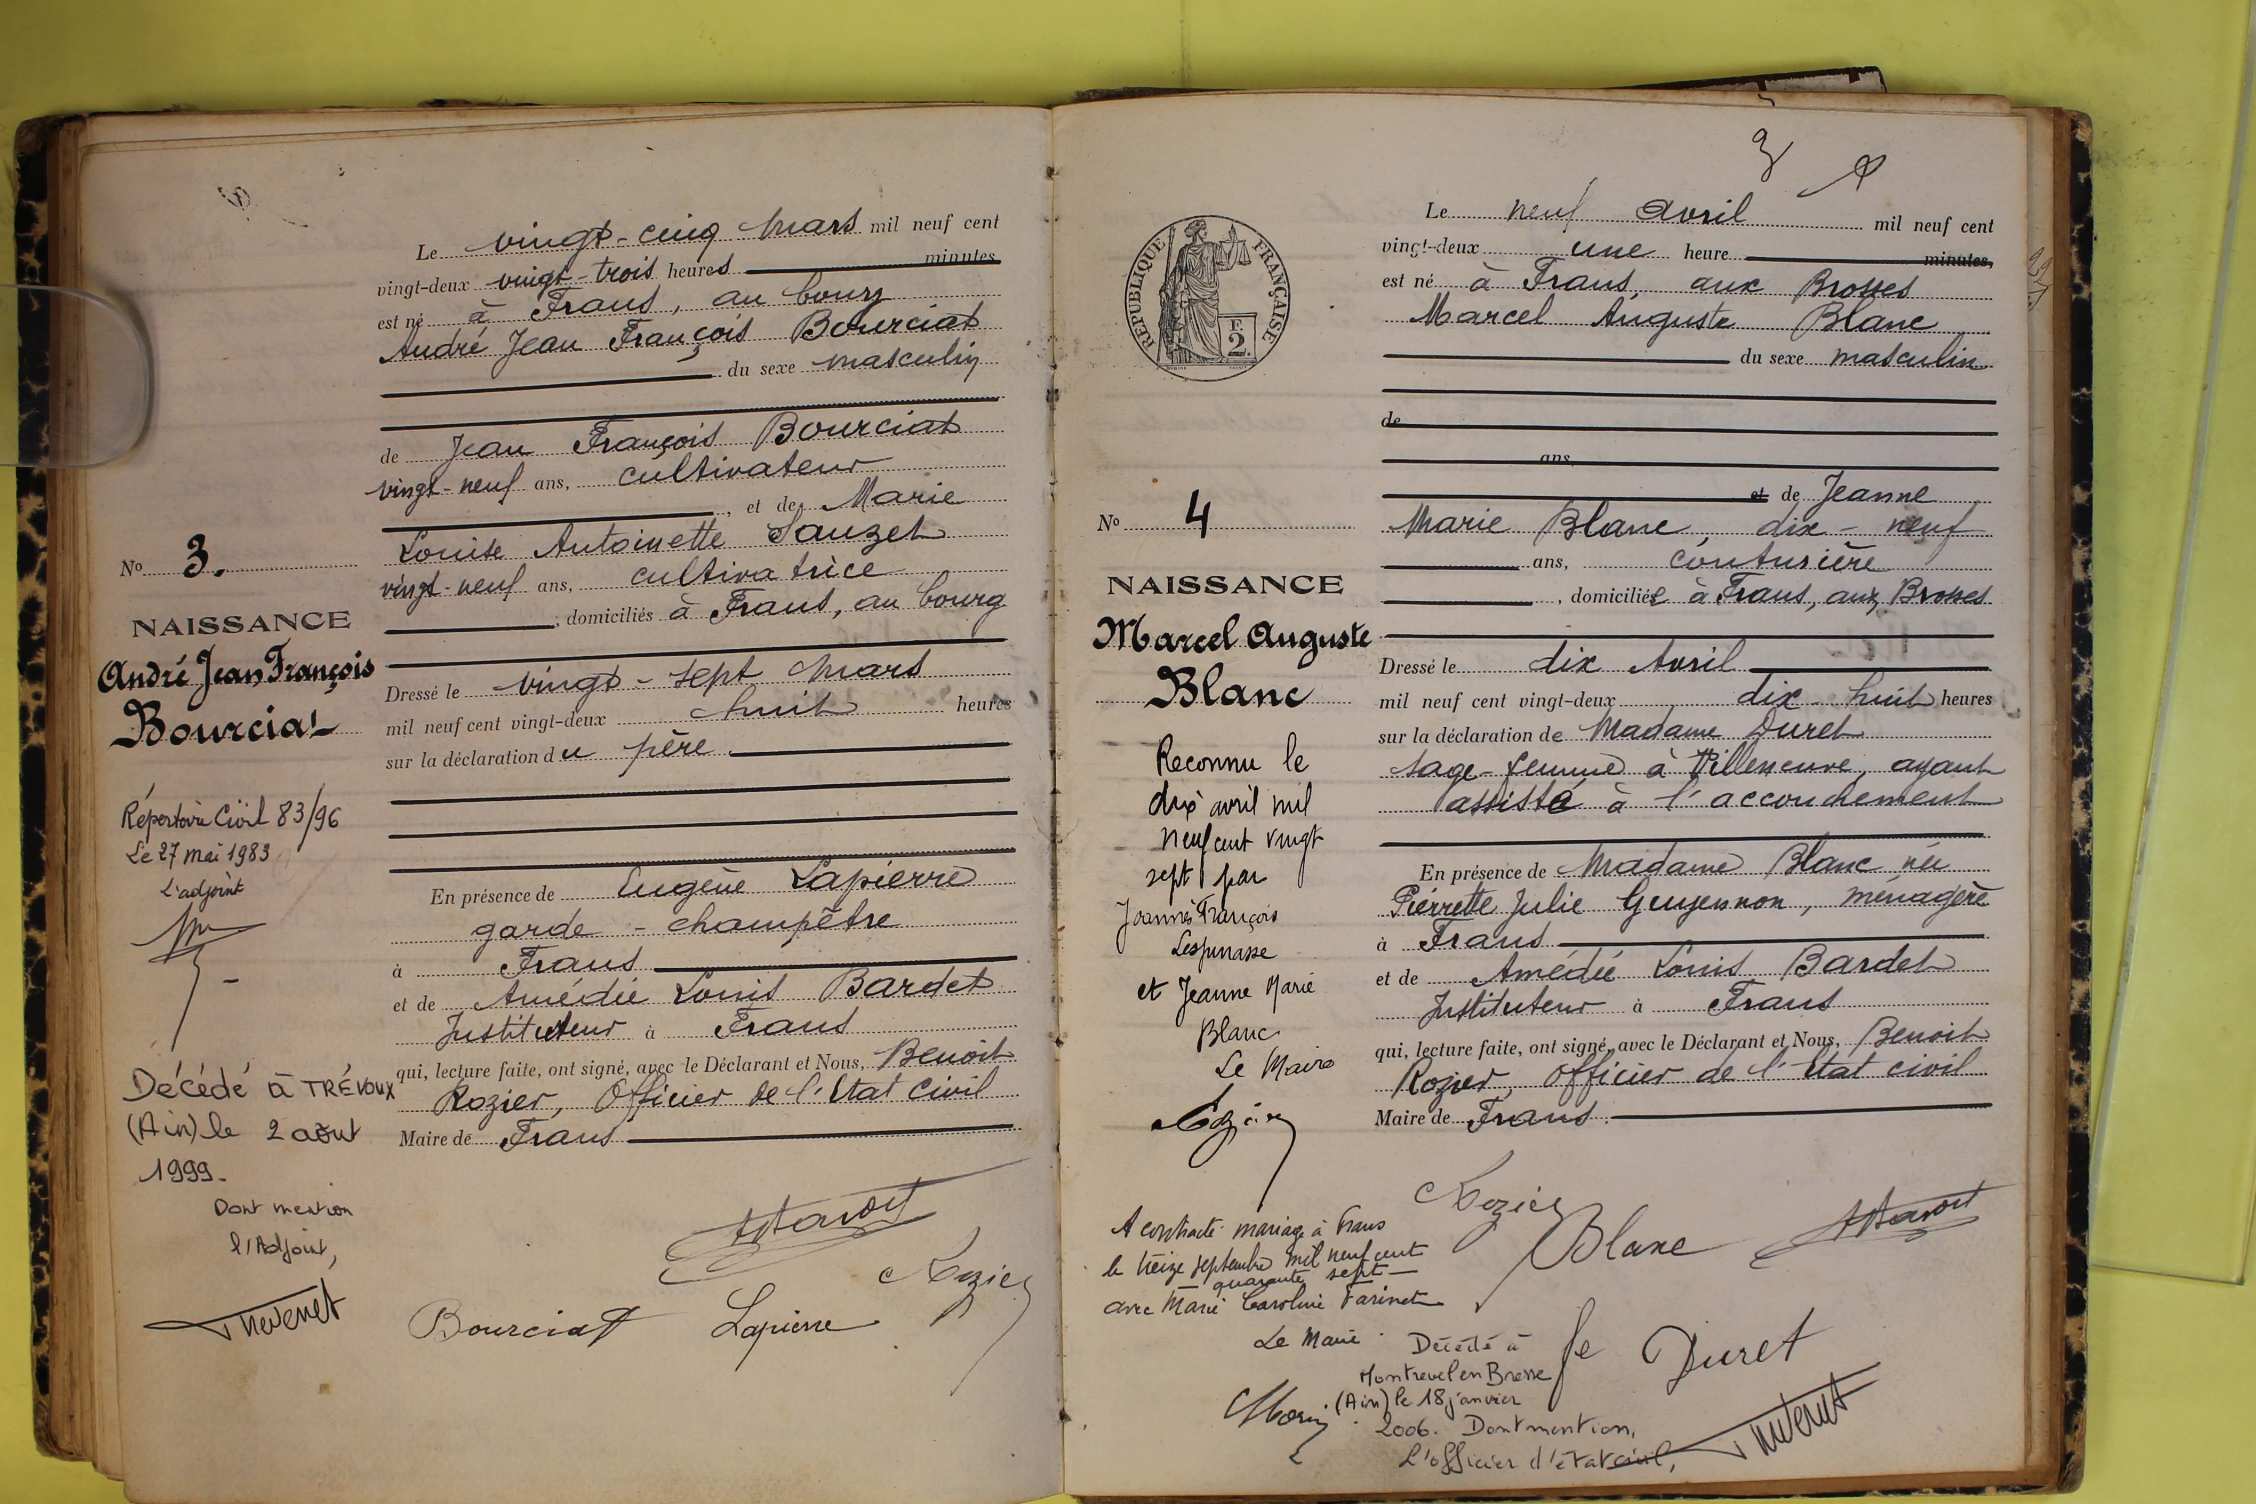 Le vingt-cinq Mars mil neuf cent
vingt-deux vingt-trois heures minutes
est né à Frans, au bourg
André Jean François Bourciat
du sexe masculin
de Jean François Bourciat
vingt-neuf ans, cultivateur
, et de Marie
Louise Antoinette Sauzet
vingt-neuf ans, cultivatrice
, domiciliés à Frans, au bourg
Dressé le vingt-sept Mars
mil neuf cent vingt-deux huit heures
sur la déclaration du père
En présence de Eugène Lapierre
garde-champêtre
à Frans
et de Amédée Louis Bardet
Instituteur à Frans
qui, lecture faite, ont signé, avec le Déclarant et Nous, Benoit
Rozier, Officier de l'Etat Civil
Maire de Frans
Rozier
Bourciat Lapierre
No 3.
NAISSANCE
André Jean François
Bourciat
Répertoire Civil 83/96
Le 27 mai 1983
L'adjoint
Décédé à TRÉVOUX
(Ain) le 2 août
1999.
Dont mention
l'Adjoint,
Thevenet
3
RÉPUBLIQUE FRANÇAISE
F.
2.
Le neuf Avril mil neuf cent
vingt-deux une heure minutes,
est né à Frans, aux Brosses
Marcel Auguste Blanc
du sexe masculin
de
ans,
et de Jeanne
Marie Blanc, dix-neuf
ans, couturière
, domiciliée à Frans, aux Brosses
Dressé le dix Avril
mil neuf cent vingt-deux dix-huit heures
sur la déclaration de Madame Duret
sage-femme à Villeneuve, ayant
assisté à l'accouchement
En présence de Madame Blanc née
Pierrette Julie Guyennon, ménagère
à Frans
et de Amédée Louis Bardet
Instituteur à Frans
qui, lecture faite, ont signé, avec le Déclarant et Nous, Benoit
Rozier, Officier de l'Etat civil
Maire de Frans.
Rozier
Blanc
fe Duret
No 4
NAISSANCE
Marcel Auguste
Blanc
Reconnu le
dix avril mil
neuf cent vingt
sept par
Joannès François
Lespinasse
et Jeanne Marie
Blanc
Le Maire
Rozier
A contracté mariage à Frans
le treize septembre mil neuf cent
quarante sept
avec Marie Caroline Farinet
Le Maire
Décédé à
Montrevel en Bresse
(Ain) le 18 janvier
2006. Dont mention,
L'officier d'état civil,
Thevenet